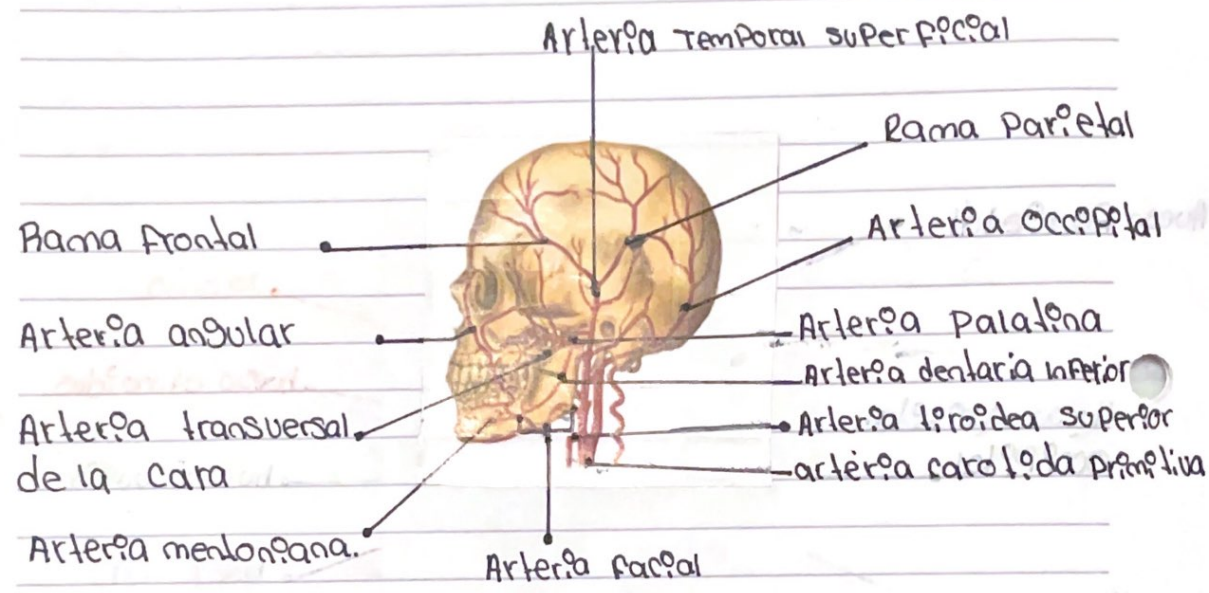 Arteria Temporal superficial
Rama Parietal
Rama frontal
Arteria Occipital
Arteria angular
Arteria Palatina
Arteria dentaria inferior
Arteria transversal
de la cara
Arteria tiroidea superior
arteria carotida primitiva
Arteria mentoniana.
Arteria facial